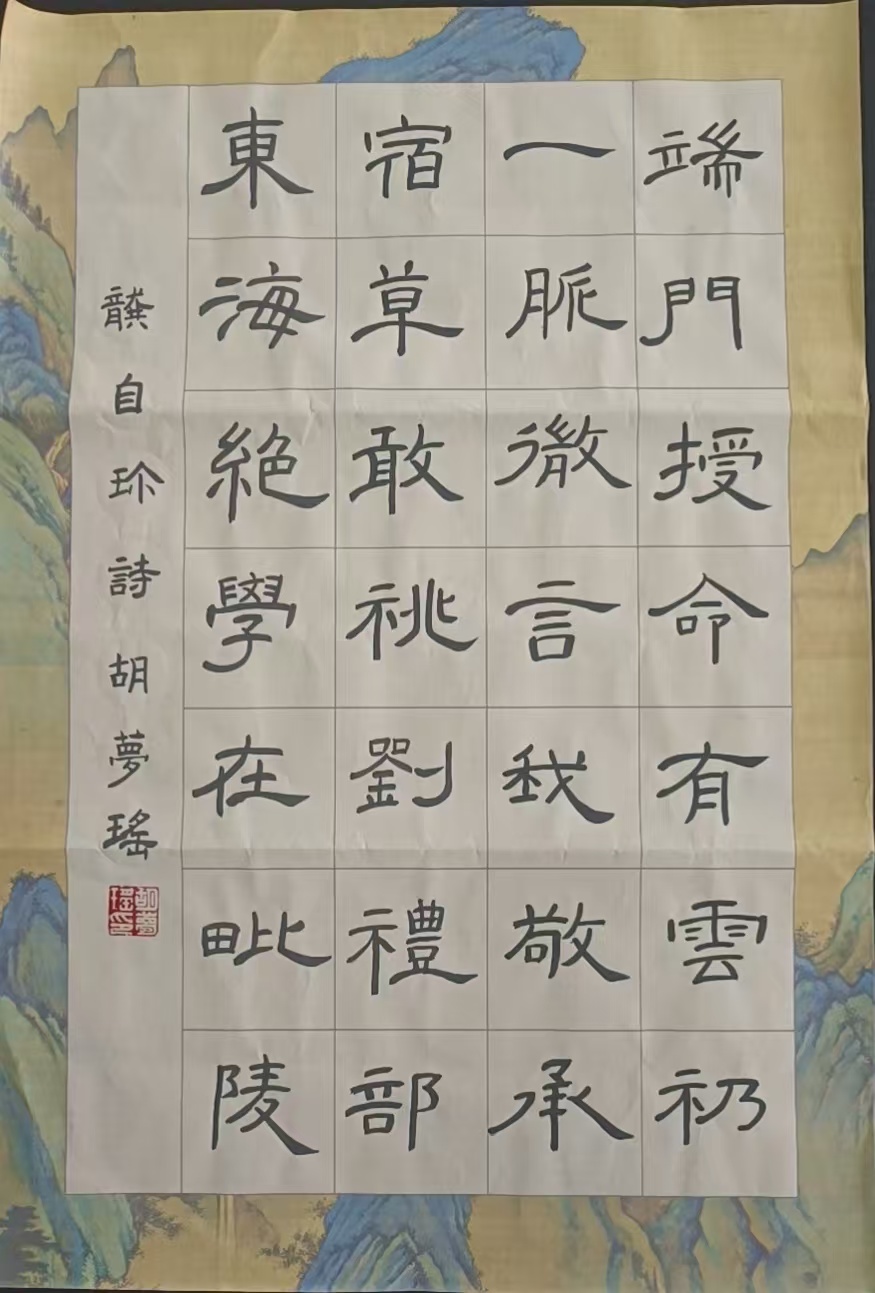 端門授命有雲礽
一脈微言我敬承
宿草敢祧劉禮部
東海絕學在毗陵
龔自珍詩 胡夢瑤
胡夢瑤印